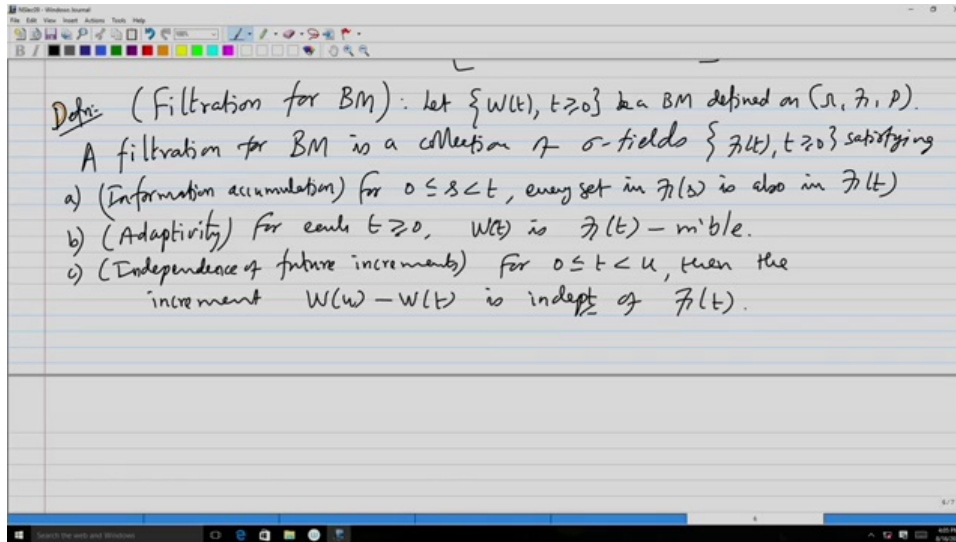 NSDec01 - Windows Journal
File Edit View Insert Actions Tools Help
Defn: (Filtration for BM): Let {W(t), t≥0} be a BM defined on (Ω, ℱ, P).
A filtration for BM is a collection of σ-fields {ℱ(t), t≥0} satisfying
a) (Information accumulation) for 0 ≤ s < t, every set in ℱ(s) is also in ℱ(t)
b) (Adaptivity) For each t ≥ 0, W(t) is ℱ(t) – m'ble.
c) (Independence of future increments) For 0 ≤ t < u, then the
increment W(u) – W(t) is indept of ℱ(t).
6/7
6
Search the web and Windows
4:05 PM